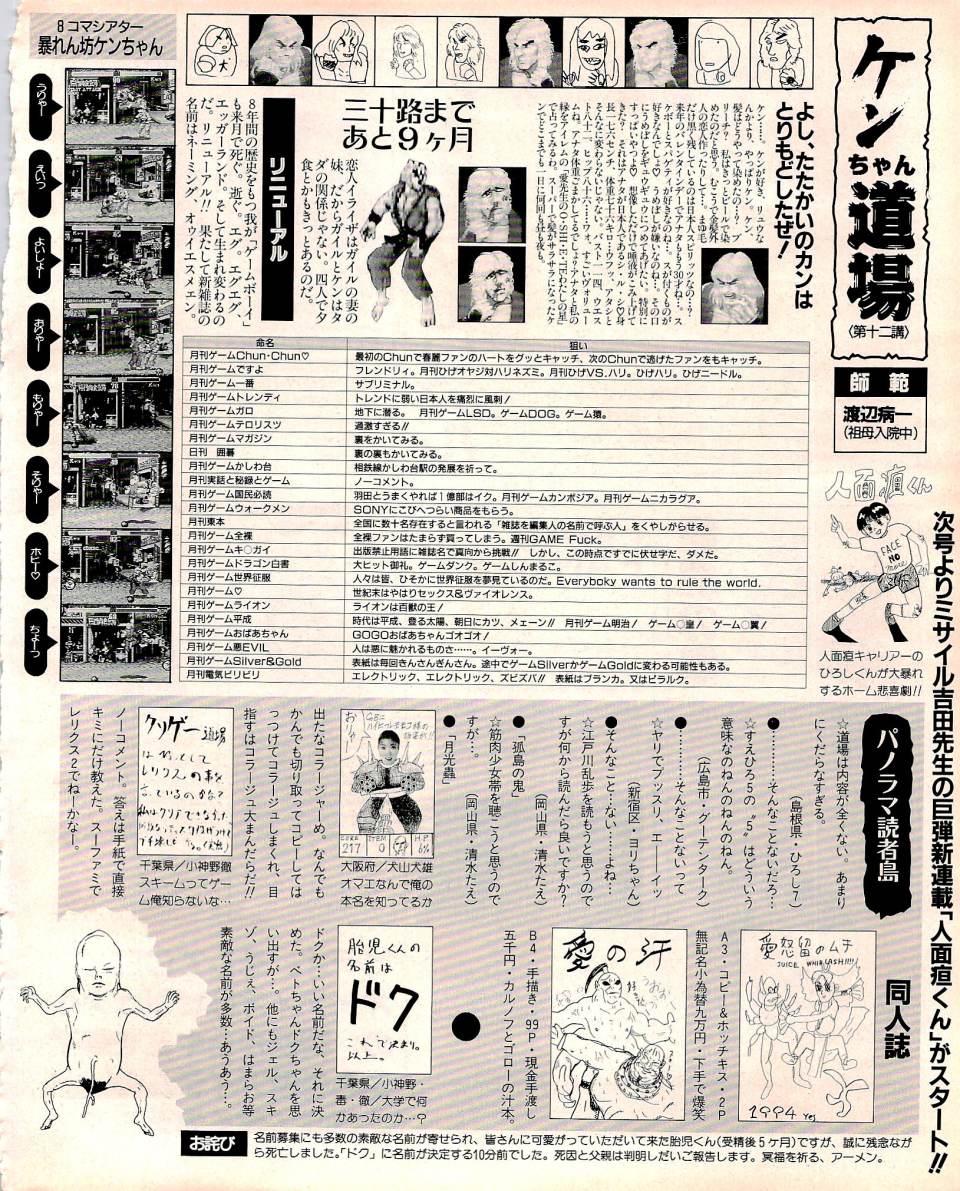 ケンちゃん道場
〈第十二講〉
師範
渡辺病一
(祖母入院中)
よし、たたかいのカンは
とりもどしたぜ!
ケン……。ケンが好き、リュウな
んかより、やっぱりケン。ケン、
髪はどうやって染めたの…?ブ
リーチ?私はきっとビールで染
めたのだと思う。むこうで金髪外
人の恋人作ったりして…。まゆ毛
だけ黒く残しているのは日本人スピリッツなの…?
来年のバレンタインデーでアナタももう30才ね…。ス
ポーツとスパゲティが好きなのね…。スが付くものが
好きなんでしょ?うめぼしが嫌いなのね…。その口
にうめぼしをギュウギュウにつめてあげたい。特別に
すっぱいやつよ♡想像しただけで唾液がこみ上げて
きた?それはアナタが日本人であるシ・ル・シ♡身
長一七六センチ、体重七十六キロ…ウフッ、アタシと
そんなに変わらないじゃない。バスト一一四、ウエス
ト八一、ヒップ八十六…ワオ、すごいヴォリュー
ムね。アナタ体重ごまかしてるでしょ?アナタと私の
縁をアイレムの「愛先生のO・SHI・E・TEわたしの星」
で占ってみるわ。スーパーで髪がサラサラになったケ
ンでどこまでも一日に何回も昼も夜も。
三十路まで
あと9ヶ月
恋人イライザはガイルの妻の
妹、だからガイルとケンはタ
ダの関係じゃない。四人で夕
食とかもきっとあるのだ。
リニューアル
8年間の歴史をもつ我が「ゲームボーイ」
も来月で死ぬ。逝ぐ。エグ。エグエグ、
エッガーランド。そして生まれ変わるの
だ。リニューアル!!果たして新雑誌の
名前はネーミング、オゥイエスメェン。
8コマシアター
暴れん坊ケンちゃん
うりゃー
えいっ
よいしょー
まりゃー
ものやー
そのやー
ホピー♡
ちょーっ
命名 狙い
月刊ゲームChun・Chun♡ 最初のChunで春麗ファンのハートをグッとキャッチ、次のChunで逃げたファンをもキャッチ。
月刊ゲームですよ フレンドリィ。月刊ひげオヤジ対ハリネズミ。月刊ひげVS.ハリ。ひげハリ。ひげニードル。
月刊ゲーム一番 サブリミナル。
月刊ゲームトレンディ トレンドに弱い日本人を痛烈に風刺!
月刊ゲームガロ 地下に潜る。 月刊ゲームLSD。ゲームDOG。ゲーム猿。
月刊ゲームテロリスツ 過激すぎる!!
月刊ゲームマガジン 裏をかいてみる。
日刊 囲碁 裏の裏もかいてみる。
月刊ゲームかしわ台 相鉄線かしわ台駅の発展を祈って。
月刊実話と秘録とゲーム ノーコメント。
月刊ゲーム国民必読 羽田とうまくやれば1億部はイク。月刊ゲームカンボジア。月刊ゲームニカラグア。
月刊ゲームウォークメン SONYにこびへつらい商品をもらう。
月刊東本 全国に数十名存在すると言われる「雑誌を編集人の名前で呼ぶ人」をくやしがらせる。
月刊ゲーム全裸 全裸ファンはたまらず買ってしまう。週刊GAME Fuck。
月刊ゲームキ○ガイ 出版禁止用語に雑誌名で真向から挑戦!! しかし、この時点ですでに伏せ字だ、ダメだ。
月刊ゲームドラゴン白書 大ヒット御礼。ゲームダンク。ゲームしんまるこ。
月刊ゲーム世界征服 人々は皆、ひそかに世界征服を夢見ているのだ。Everyboky wants to rule the world.
月刊ゲーム♡ 世紀末はやはりセックス&ヴァイオレンス。
月刊ゲームライオン ライオンは百獣の王!
月刊ゲーム平成 時代は平成、登る太陽、朝日にカツ、メェーン!! 月刊ゲーム明治! ゲーム○皇! ゲーム○翼!
月刊ゲームおばあちゃん GOGOおばあちゃんゴオゴオ!
月刊ゲーム悪EVIL 人は悪に魅かれるものさ……。イーヴォー。
月刊ゲームSilver&Gold 表紙は毎回きんさんぎんさん。途中でゲームSilverがゲームGoldに変わる可能性もある。
月刊電気ビリビリ エレクトリック、エレクトリック、ズビズバ!! 表紙はブランカ。又はビラルク。
人面疽くん
FACE
NO
More
人面疽キャリアーの
ひろしくんが大暴れ
するホーム悲喜劇!!
次号よりミサイル吉田先生の巨弾新連載「人面疽くん」がスタート!!
パノラマ読者島
☆道場は内容が全くない。あまり
にくだらなすぎる。
(島根県・ひろし7)
●………そんなことないだろ…
☆すえひろ5の〝5〟はどういう
意味なのねんのねんのねん。
(広島市・グーテンターク)
●………そんなことないって
☆ヤリでブッスリ、エ――イッ
(新宿区・ヨリちゃん)
●そんなこと…ない…よね…
☆江戸川乱歩を読もうと思うので
すが何から読んだら良いですか?
(岡山県・清水たえ)
●「孤島の鬼」
☆筋肉少女帯を聴こうと思うので
すが…。
(岡山県・清水たえ)
●「月光蟲」
おりゃー
217
0
大阪府/犬山犬雄
オマエなんで俺の
本名を知ってるか
出たなコラージャーめ。なんでも
かんでも切り取ってコピーしては
っつけてコラージュしまくれ、目
指すはコラージュ大まんだらだ!!
クソゲー道場
千葉県/小神野徹
スキームってゲー
ム俺知らないな…
ノーコメント。答えは手紙で直接
キミにだけ教えた。スーファミで
レリクス2でねーかなー。
同人誌
愛怒留のムチ
JUICE WHIPLASH!!!!
1994 Yes
A3・コピー&ホッチキス・2P
無記名小為替九万円・下手で爆笑
愛の汗
B4・手描き・99P・現金手渡し
五千円・カルノフとゴローの汁本。
胎児くんの
名前は
ドク
これで決まり。
以上。
千葉県/小神野・
毒・徹/大学で何
かあったのか…?
ドクか…いい名前だな、それに決
めた。ベトちゃんドクちゃんを思
い出すが…。他にもジェル、スキ
ゾ、うじぇ、ボイド、はまらお等
素敵な名前が多数…あうあう…。
お詫び
名前募集にも多数の素敵な名前が寄せられ、皆さんに可愛がっていただいて来た胎児くん(受精後5ヶ月)ですが、誠に残念なが
ら死亡しました。「ドク」に名前が決定する10分前でした。死因と父親は判明しだいご報告します。冥福を祈る、アーメン。